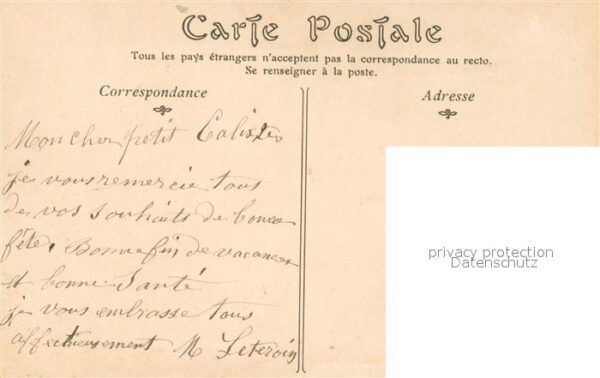 Carte Postale
Tous les pays étrangers n'acceptent pas la correspondance au recto.
Se renseigner à la poste.
Correspondance
Adresse
Mon cher petit
je vous remercie tous
de vos souhaits de bonne
fête. Bonne fin de vacances
et bonne Santé
je vous embrasse tous
affectueusement M
privacy protection
Datenschutz